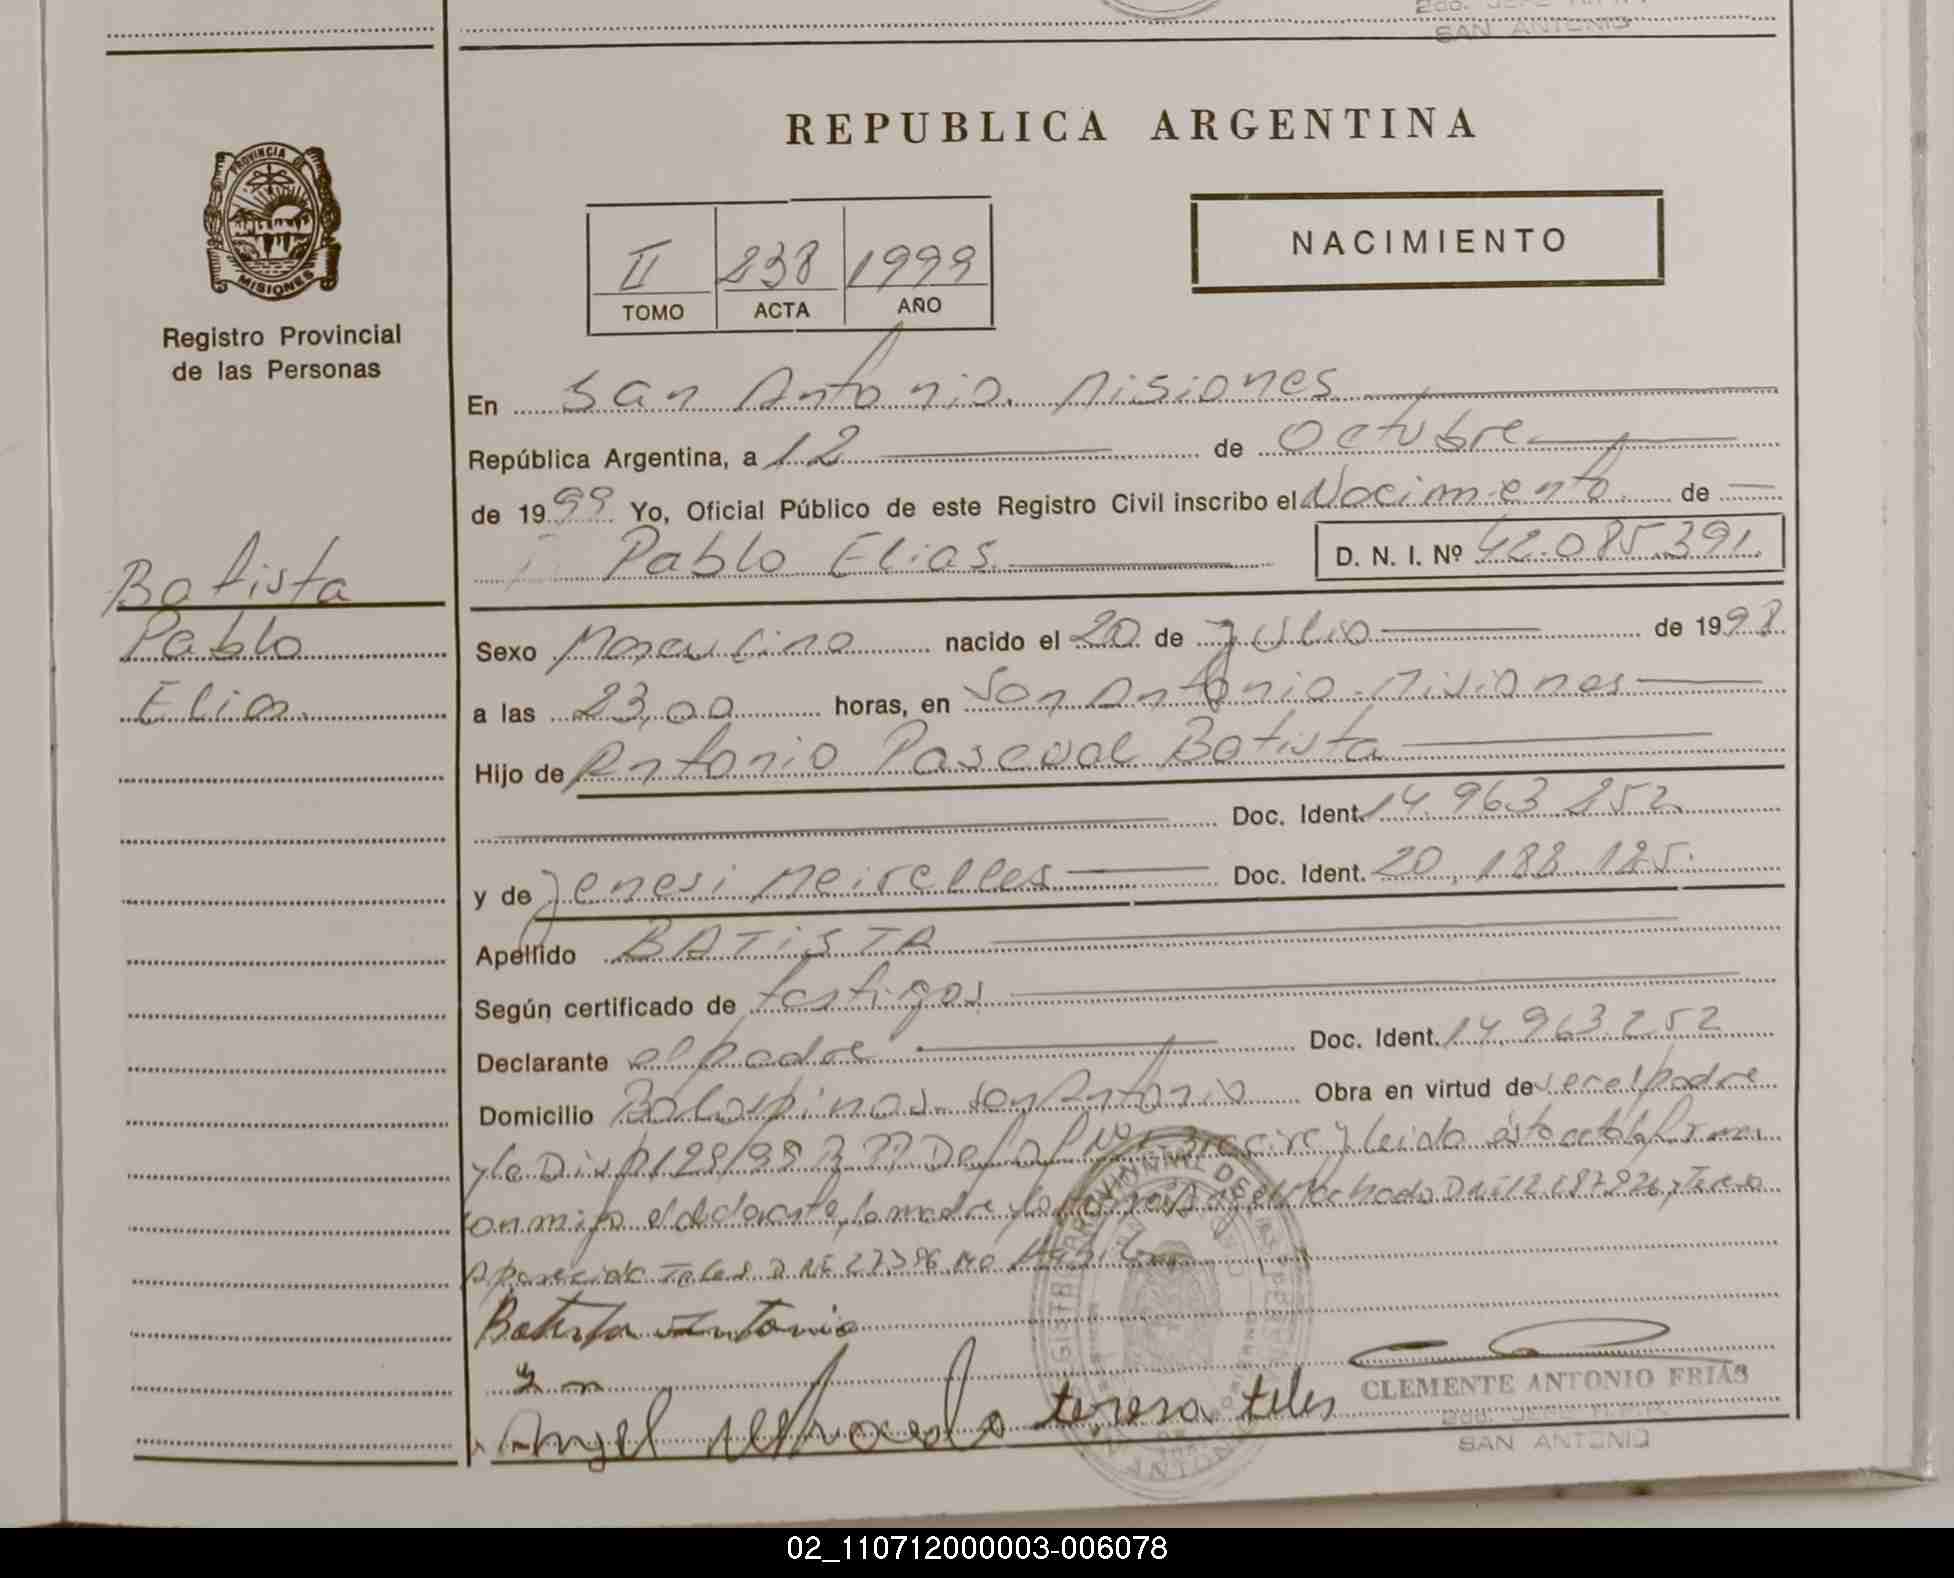 SAN ANTONIO
REPUBLICA ARGENTINA
PROVINCIA DE
MISIONES
Registro Provincial
de las Personas
II 238 1999
TOMO ACTA AÑO
NACIMIENTO
En San Antonio. Misiones
República Argentina, a 12 de Octubre
de 1999 Yo, Oficial Público de este Registro Civil inscribo el Nacimiento de
Pablo Elias. D. N. I. Nº 42.085.391.
Batista
Pablo
Elias.
Sexo Masculino nacido el 20 de julio de 1998
a las 23,00 horas, en San Antonio. Misiones
Hijo de Antonio Pascual Batista
Doc. Ident. 14.963.252
y de Jenesi Meirelles Doc. Ident. 20.188.125.
Apellido BATISTA
Según certificado de testigos
Declarante el padre Doc. Ident. 14.963.252
Domicilio San Antonio Obra en virtud de ser el padre
y leida esta acta la firman
conmigo el declarante, la madre y los testigos Angel Machado DNI y Teresa
Aparecida Teles DNI
Batista Antonio
Angel Machado teresa teles
CLEMENTE ANTONIO FRIAS
SAN ANTONIO
02_110712000003-006078